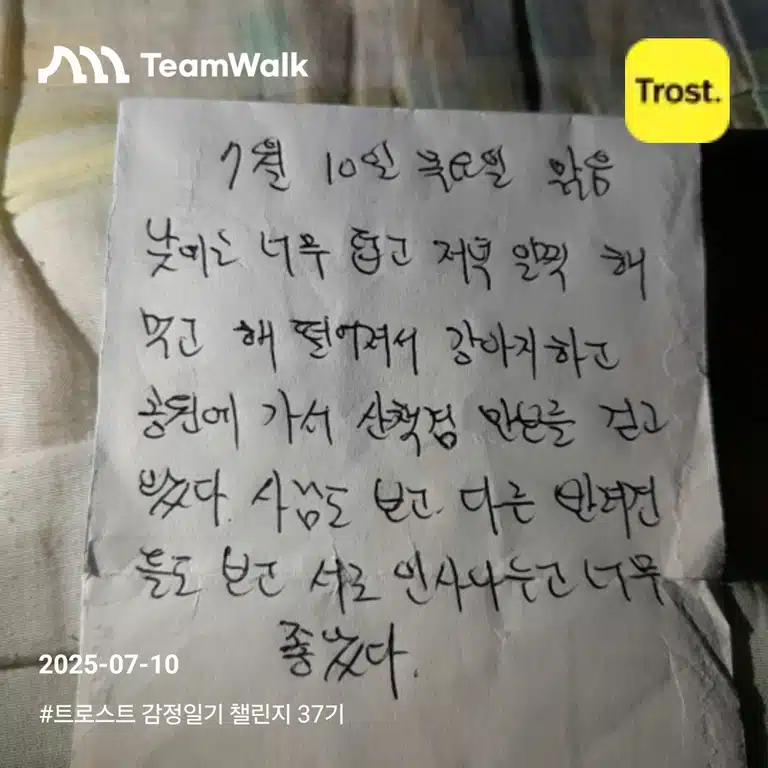 TeamWalk
Trost.
7월 10일 목요일 맑음
낮에는 너무 덥고 저녁 일찍 해
먹고 해 떨어져서 강아지하고
공원에 가서 산책겸 만보를 걷고
왔다. 사람도 보고 다른 반려견
들도 보고 서로 인사나누고 너무
좋았다.
2025-07-10
#트로스트 감정일기 챌린지 37기